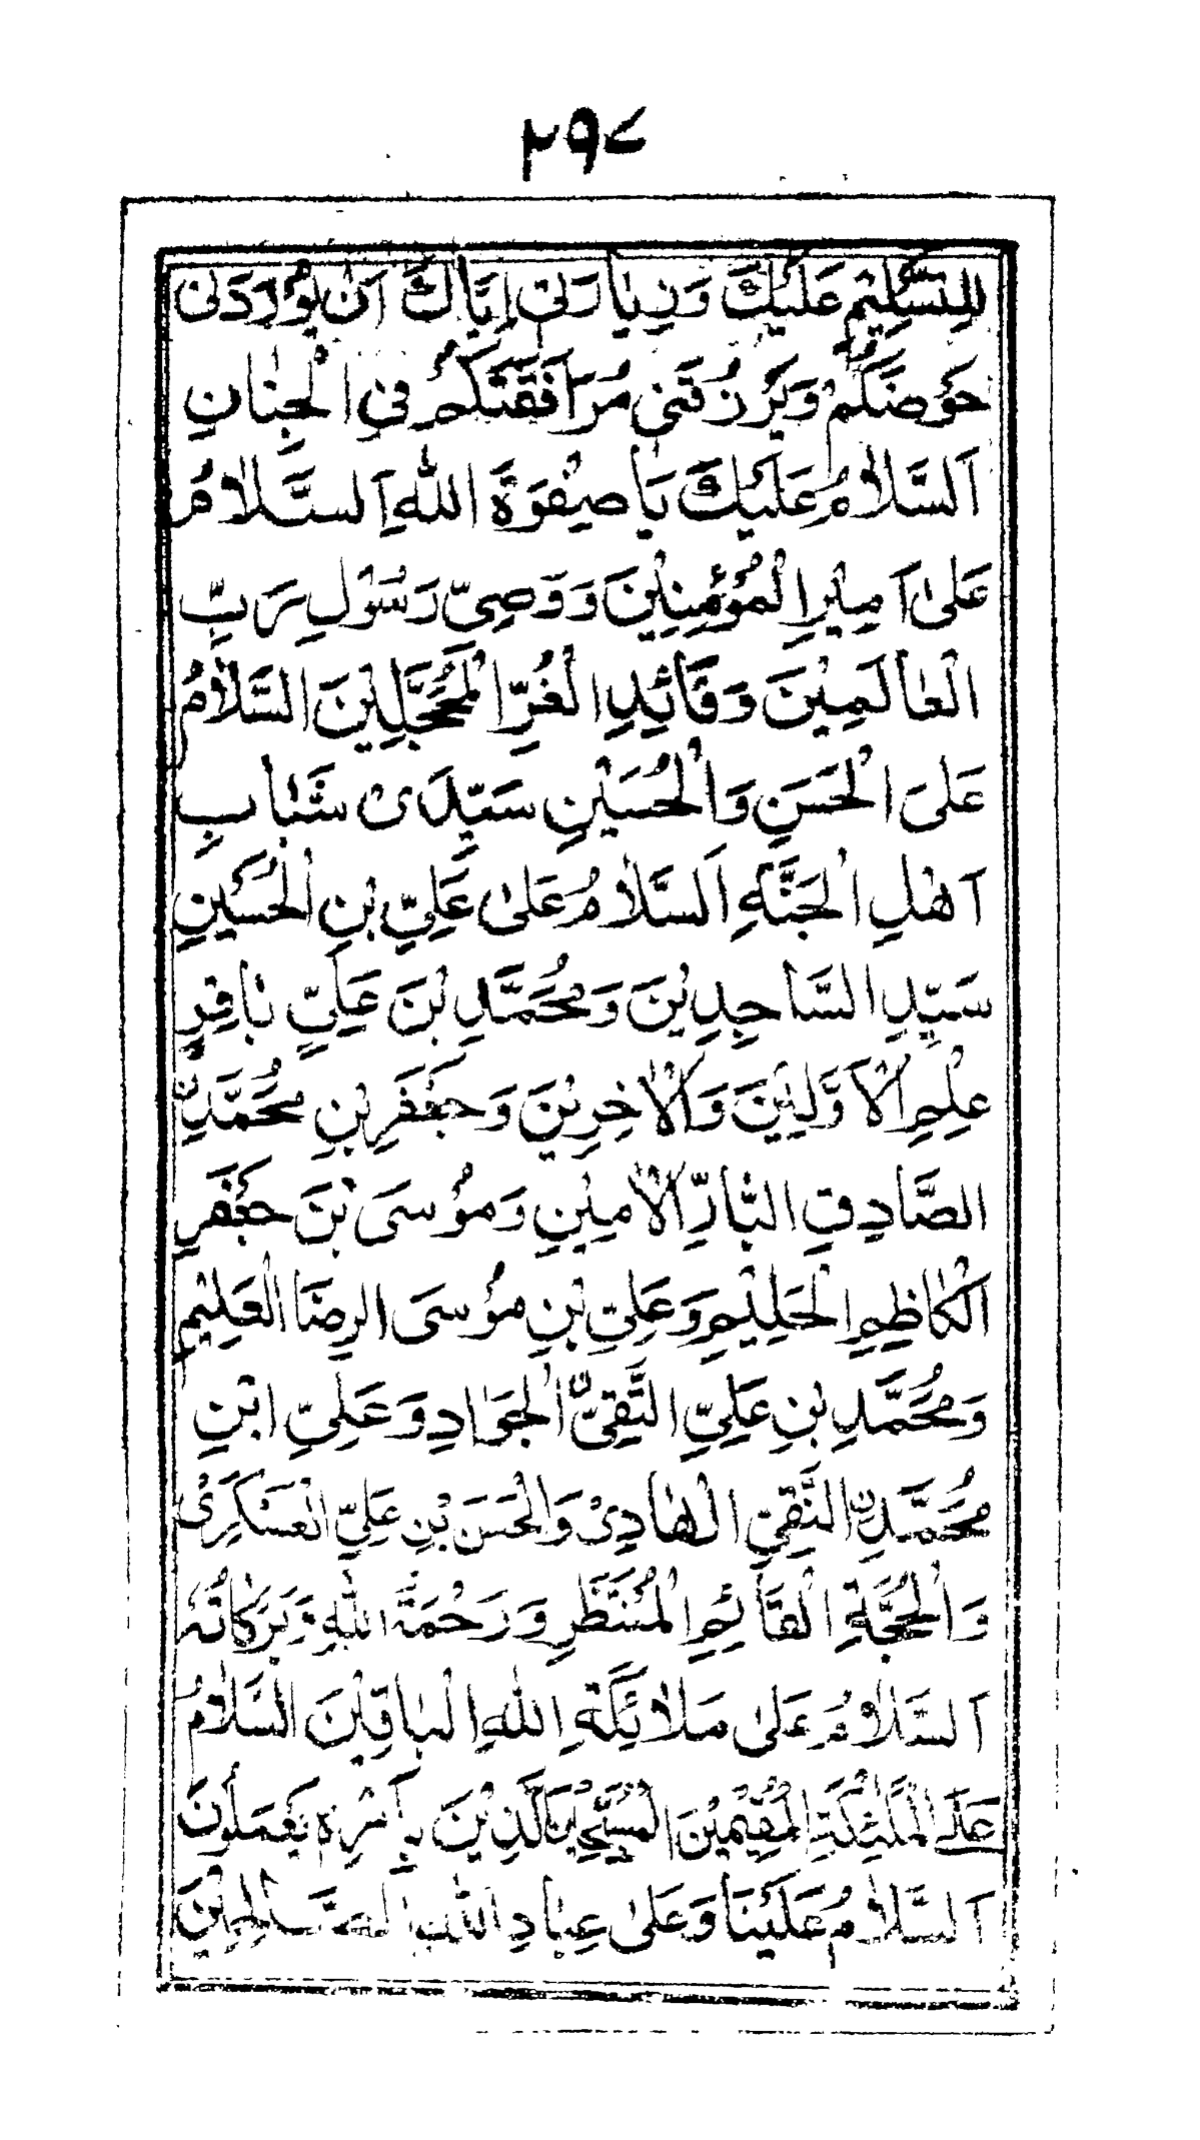 ۲۹۷
لِلتَّسْلِيْمِ عَلَيْكَ وَزِيَارَتِيْ اِيَّاكَ اَنْ يُوْرِدَنِيْ
حَوْضَكُمْ وَيَرْزُقَنِيْ مُرَافَقَتَكُمْ فِي الْجِنَانِ
اَلسَّلَامُ عَلَيْكَ يَا صِفْوَةَ اللهِ اَلسَّلَامُ
عَلٰى اَمِيْرِ الْمُؤْمِنِيْنَ وَوَصِيِّ رَسُوْلِ رَبِّ
الْعَالَمِيْنَ وَقَائِدِ الْغُرِّ الْمُحَجَّلِيْنَ السَّلَامُ
عَلَى الْحَسَنِ وَالْحُسَيْنِ سَيِّدَيْ شَبَابِ
اَهْلِ الْجَنَّةِ اَلسَّلَامُ عَلٰى عَلِيِّ بْنِ الْحُسَيْنِ
سَيِّدِ السَّاجِدِيْنَ وَمُحَمَّدِ بْنِ عَلِيٍّ بَاقِرِ
عِلْمِ الْاَوَّلِيْنَ وَالْاٰخِرِيْنَ وَجَعْفَرِ بْنِ مُحَمَّدِنِ
الصَّادِقِ الْبَّارِّ الْاَمِيْنِ وَمُوْسَى بْنَ جَعْفَرِ
اَلْكَاظِمِ الْحَلِيْمِ وَعَلِيِّ بْنِ مُوْسَى الرِضَا الْعَلِيْمِ
وَمُحَمَّدِ بْنِ عَلِيِّ التَّقِيِّ الْجَوَادِ وَعَلِيِّ ابْنِ
مُحَمَّدِنِ النَّقِيِّ الْهَادِيْ وَالْحَسَنِ بْنِ عَلِيِّ الْعَسْكَرِيْ
وَالْحُجَّةِ الْقَائِمِ الْمُنْتَظَرِ وَرَحْمَةُ اللهِ وَبَرَكَاتُهٗ
اَلسَّلَامُ عَلٰى مَلَائِكَةِ اللهِ الْبَاقِيْنَ السَّلَامُ
عَلَى الْمَلٰئِكَةِ الْمُقِيْمِيْنَ الْمُسَبِّحِيْنَ الَّذِيْنَ بِاَمْرِهٖ يَعْمَلُوْنَ
اَلسَّلَامُ عَلَيْنَا وَعَلٰى عِبَادِ اللهِ الصَّالِحِيْنَ